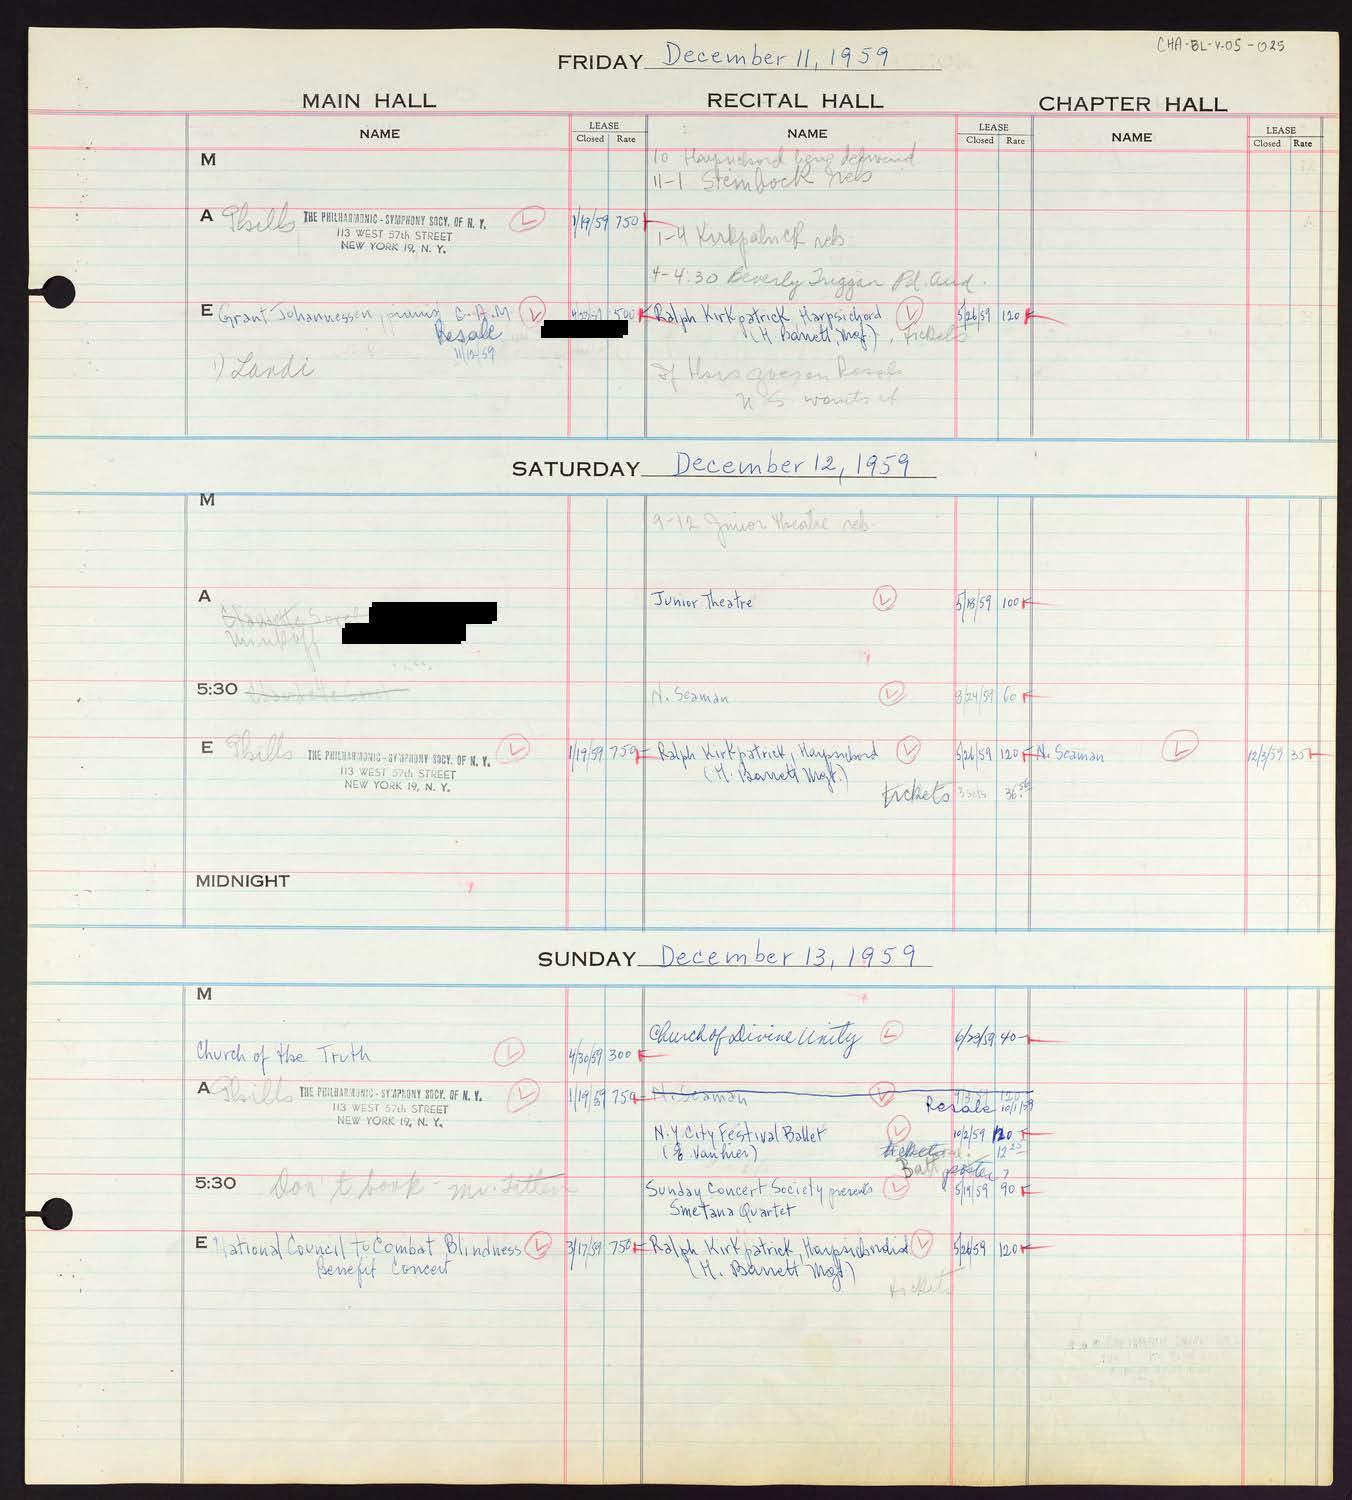 CHA-BL-V.05-025
FRIDAY December 11, 1959
MAIN HALL RECITAL HALL CHAPTER HALL
NAME LEASE Closed Rate NAME LEASE Closed Rate NAME LEASE Closed Rate
M
10 Harpsichord being delivered
11-1 Steinbock reh
A Phills THE PHILHARMONIC-SYMPHONY SOCY. OF N. Y. 1/19/59 750
113 WEST 57th STREET
NEW YORK 19, N. Y.
1-4 Kirkpatrick reh
4-4:30 Beverly Pd. Aud.
E Grant Johannessen 500 Ralph Kirkpatrick, Harpsichord 5/26/59 120
Resale (H. Barrett, Mgt.), tickets
11/12/59
1) Landi
N S wants it
SATURDAY December 12, 1959
M
9-12 Junior Theatre reh
A Junior Theatre 5/18/59 100
5:30 N. Seaman 8/24/59 60
E Phills THE PHILHARMONIC-SYMPHONY SOCY. OF N. Y. 1/19/59 750 Ralph Kirkpatrick, Harpsichord 5/26/59 120 N. Seaman 12/3/59 35
113 WEST 57th STREET (H. Barrett Mgt.)
NEW YORK 19, N. Y.
tickets 3 sets 36.
MIDNIGHT
SUNDAY December 13, 1959
M
Church of Divine Unity 6/29/59 40
Church of the Truth 4/30/59 300
A Phills THE PHILHARMONIC-SYMPHONY SOCY. OF N. Y. 1/19/59 750 N. Seaman 120
113 WEST 57th STREET Resale 10/1/59
NEW YORK 19, N. Y.
N.Y City Festival Ballet 10/2/59 120
tickets
5:30 Don't book - Mr. Sunday Concert Society presents 5/19/59 90
Smetana Quartet
E National Council To Combat Blindness 3/17/59 750 Ralph Kirkpatrick, Harpsichordist 5/26/59 120
Benefit Concert (H. Barrett Mgt)
tickets